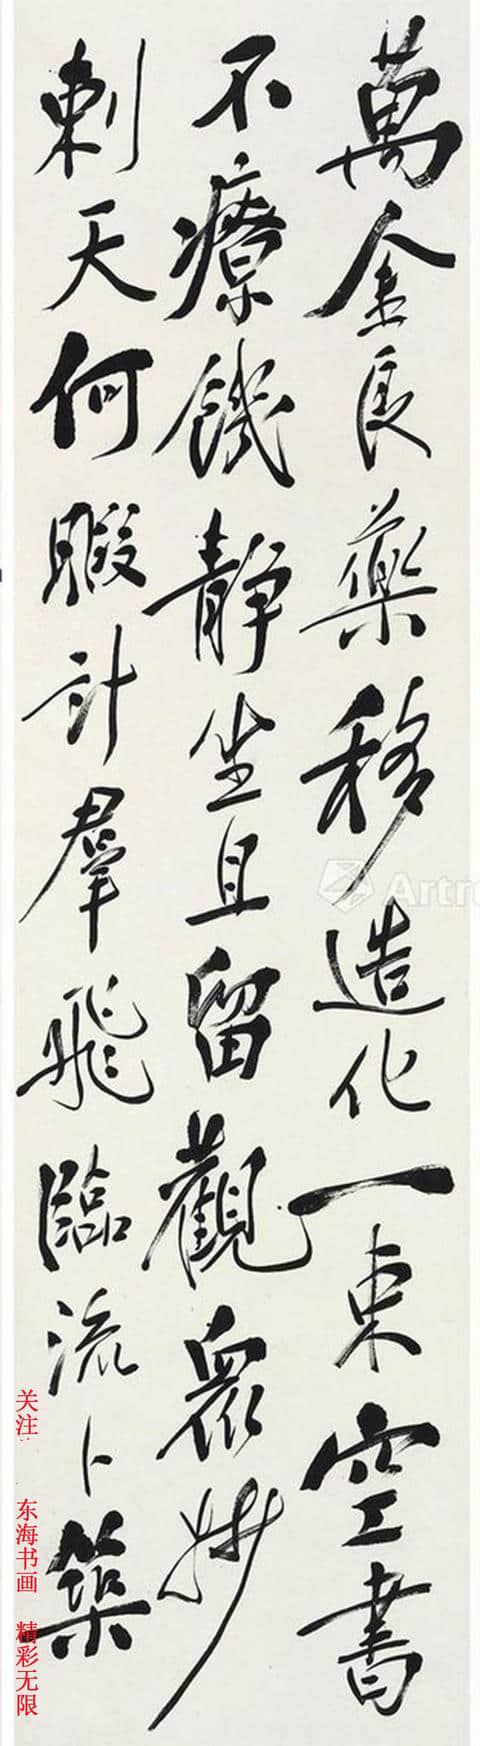 萬金良藥移造化一束空書
不療饑靜坐且留觀眾妙
刺天何暇計羣飛臨流卜築
关注
东海书画
精彩无限
Artro